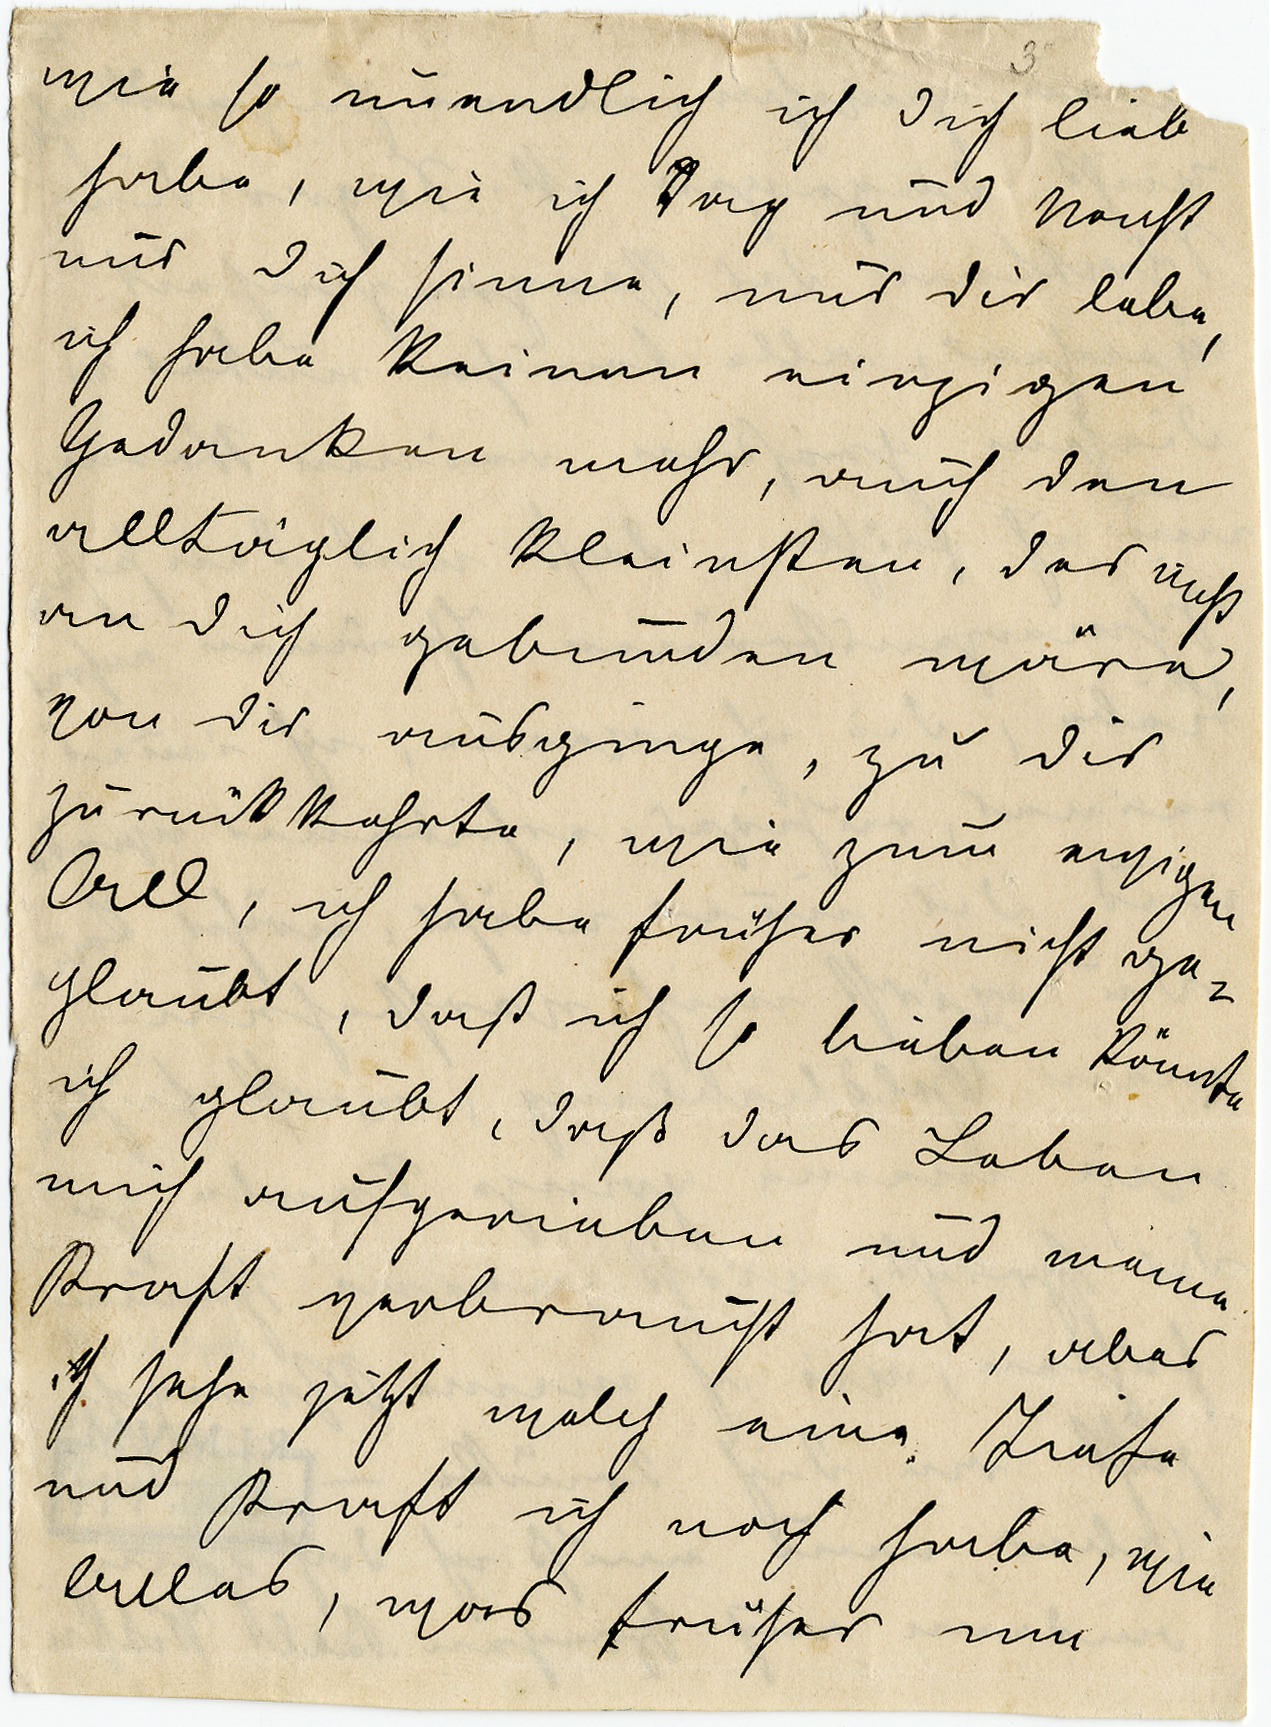 3
wie so unendlich ich dich lieb
habe, wie ich Tag und Nacht
nur dich sinne, nur dir lebe,
ich habe keinen einzigen
Gedanken mehr, auch den
alltäglich kleinsten, der nicht
an dich gebunden wäre,
von dir ausginge, zu dir
zurückkehrte, wie zum ewigen
All, ich habe früher nicht ge-
glaubt, daß ich so lieben könnte
ich glaubt, daß das Leben
mich aufgerieben und meine
Kraft verbraucht hat, aber
ich sehe jetzt welch eine Tiefe
und Kraft ich noch habe, wie
alles, was früher nur